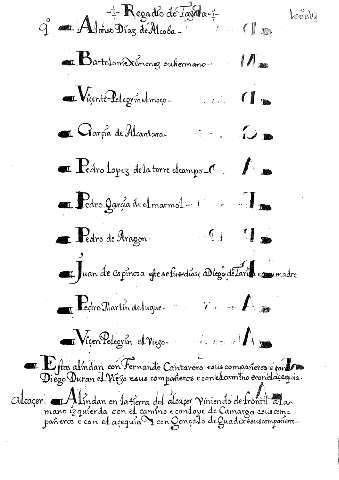 Regadio de
9º Alonso Diaz de Alcoba
Bartolome ximenez su hermano
Vicente Pelegrin el moço
Garçia de Alcantara
Pedro Lopez de la torre el campo
Pedro garçia de el marmol
Pedro de Aragon
Juan de espinosa Diego de madre
Pedro Martin de luque
Viçen Pelegrin el Viejo
Estos alindan con Fernando Cantarero e sus compañeros e con
Diego Duran el Viejo e sus compañeros e con el camino e con el açequia
Alcaçer Alindan en la tierra del alcaçer Viniendo de frontil a la
mano izquierda con el camino e con lo ye de Camargo e sus com-
pañeros e con el açequia Y con Gonçalo de Guadix e sus compañeros